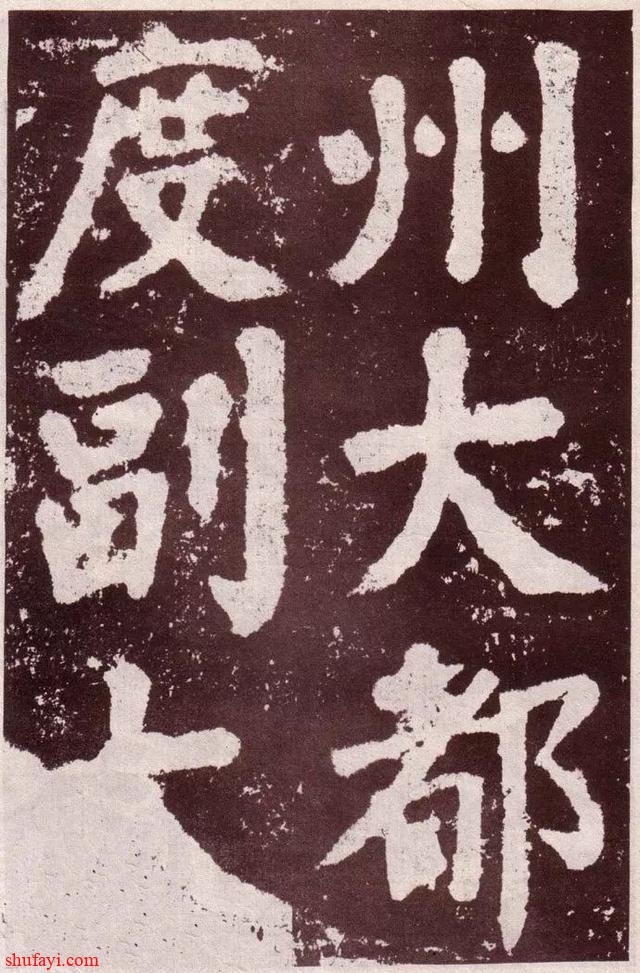 州大都
度副大
shufayi.com